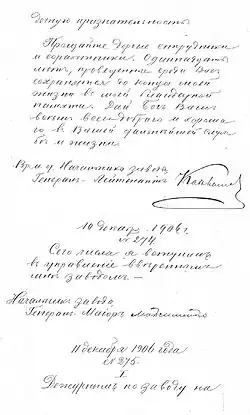 Вечную признательность
Прощайте дорогие сотрудники
и соратники. Одиннадцать
лет, проведенные среди Вас
сохранятся до конца моей
жизни в моей благодарной
памяти. Дай Бог Вам
всем всего доброго и хороше
го в Вашей дальнейшей служ
бе и жизни.
Вр. и. д. Начальника завода
Генерал-Лейтенантъ
10 декабр. 1906 г.
№ 274
Сего числа я вступилъ
в управление ввереннымъ
мне заводомъ —
Начальникъ завода
Генерал Маиоръ
11 декабря 1906 года
№ 275.
I
Дежурнымъ по заводу на